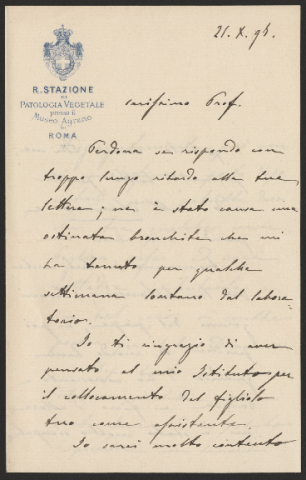 21. X. 95.
R. STAZIONE
DI
PATOLOGIA VEGETALE
presso il
MUSEO AGRARIO
ROMA
carissimo Prof.
Perdona se rispondo con
troppo lungo ritardo alla tua
lettera; ne è stato causa una
ostinata bronchite che mi
ha tenuto per qualche
settimana lontano dal labora-
torio.
Io ti ringrazio di aver
pensato al mio Istituto per
il collocamento del figliolo
tuo come assistente.
Io sarei molto contento